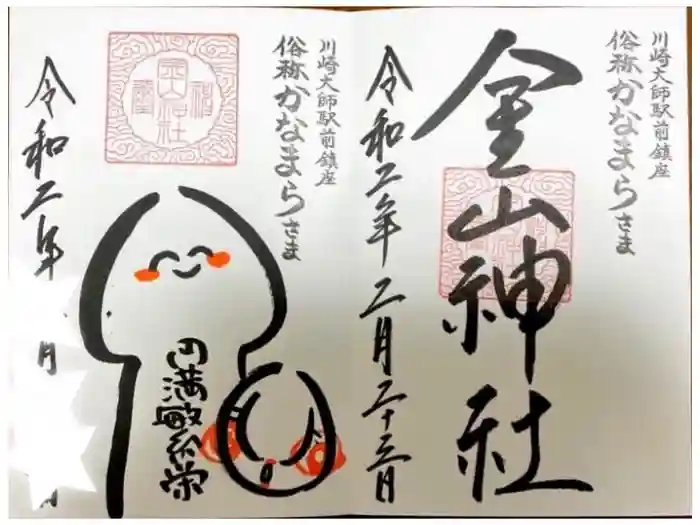 川崎大師駅前鎮座
俗称かなまらさま
金山神社
令和二年二月二十三日
川崎大師駅前鎮座
俗称かなまらさま
円満敏系栄
令和二年
月